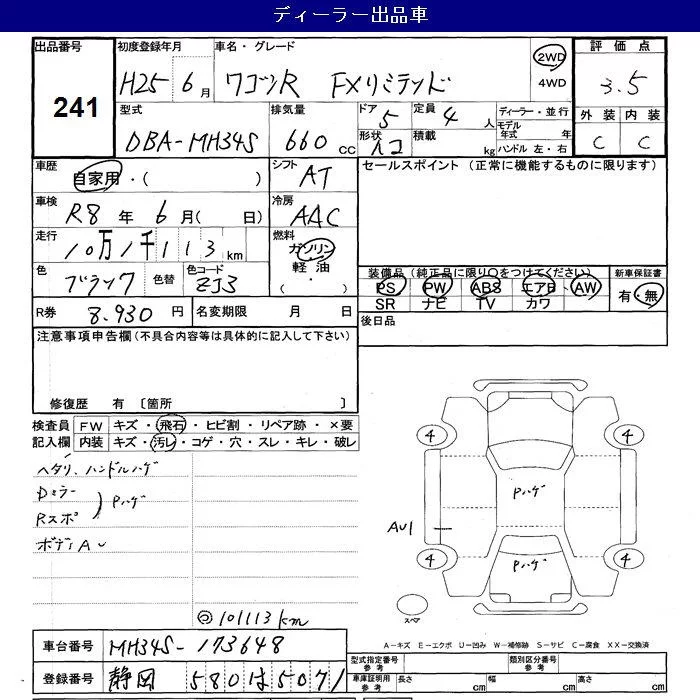 ディーラー出品車
出品番号 初度登録年月 車名・グレード 評価点
241 H25 6月 ワゴンR FXリミテッド 2WD 3.5
4WD
型式 排気量 ドア 定員 ディーラー・並行 外装 内装
DBA-MH34S 660cc 5 4人 モデル年式 年 C C
形状 積載 kg ハンドル 左・右
ハコ
車歴 シフト セールスポイント (正常に機能するものに限ります)
自家用・( ) AT
車検 冷房
R8年 6月( 日) AAC
走行 燃料
10万1千113km ガソリン
軽油
(・)
色 色替 色コード 装備品(純正品に限り○をつけてください) 新車保証書
ブラック ZJ3 PS PW ABS エアB・AW 有・無
SR ナビ TV カワ
R券 8.930円 名変期限 月 日 後日品
注意事項申告欄(不具合内容等は具体的に記入して下さい)
修復歴 有 〔箇所 〕
検査員 FW キズ・飛石・ヒビ割・リペア跡・×要
記入欄 内装 キズ・汚レ・コゲ・穴・スレ・キレ・破レ
ヘタリ、ハンドルハゲ
Dミラー
Rスポ Pハゲ
ボディA
◎101113km
4 4
Pハゲ
AU1
4 Pハゲ 4
スペア
A－キズ E－エクボ U－凹み W－補修跡 S－サビ C－腐食 XX－交換済
車台番号 MH34S-173648
型式指定番号 参考 類別区分番号 参考
登録番号 静岡 580 は 5071
車庫証明用 参考 長さ cm 幅 cm 高さ cm